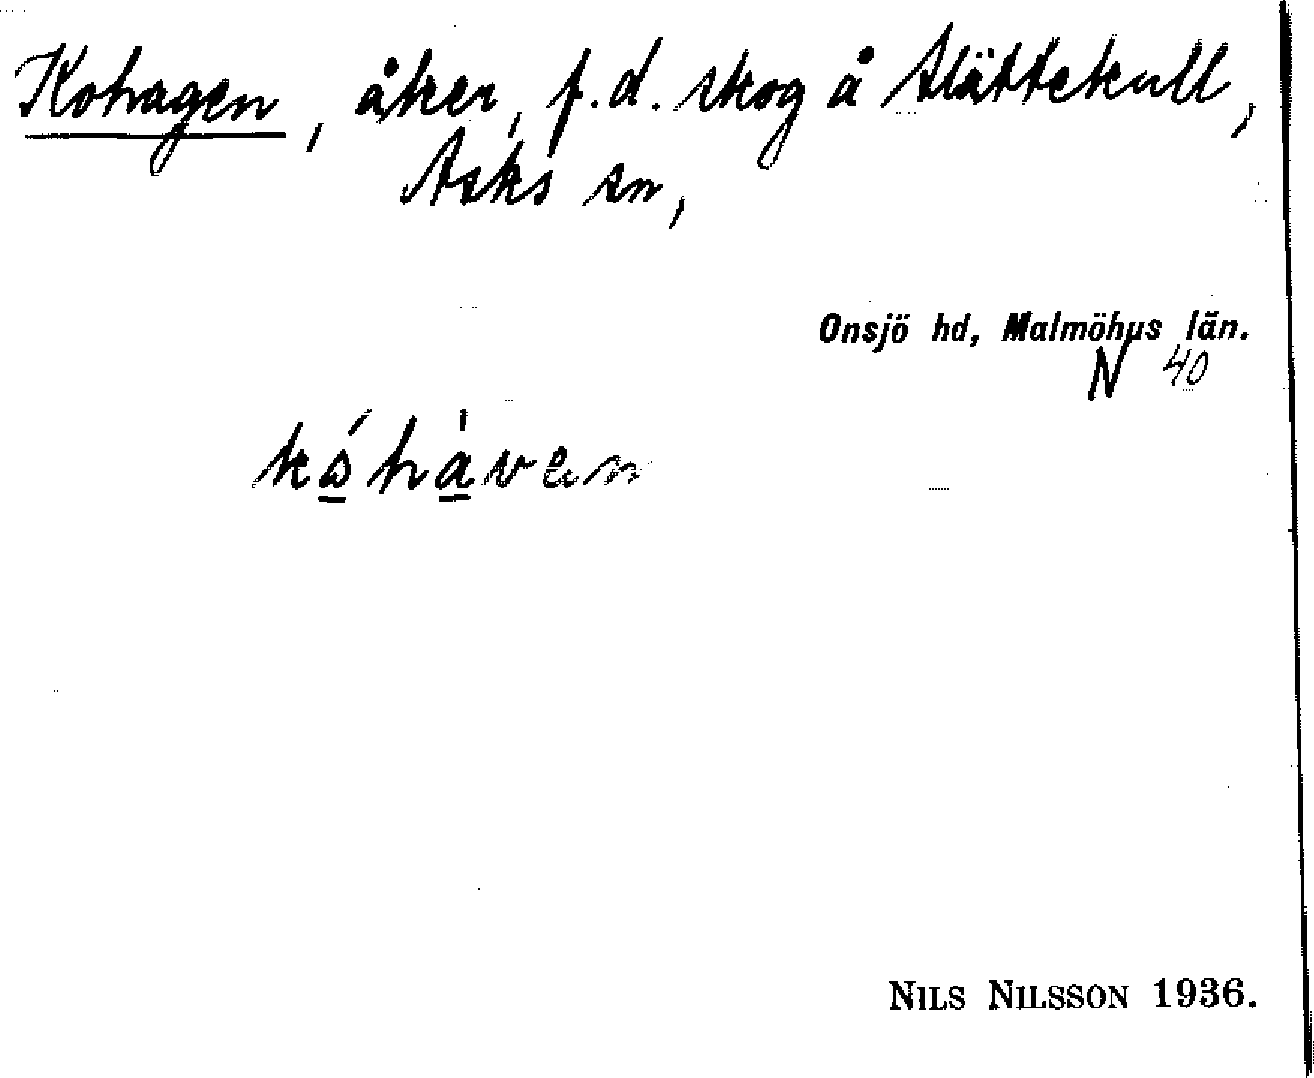 Kohagen, åker, f.d. skog å Slättekull,
Asks sn,
Onsjö hd, Malmöhus län.
N 40
kóhàvan
NILS NILSSON 1936.